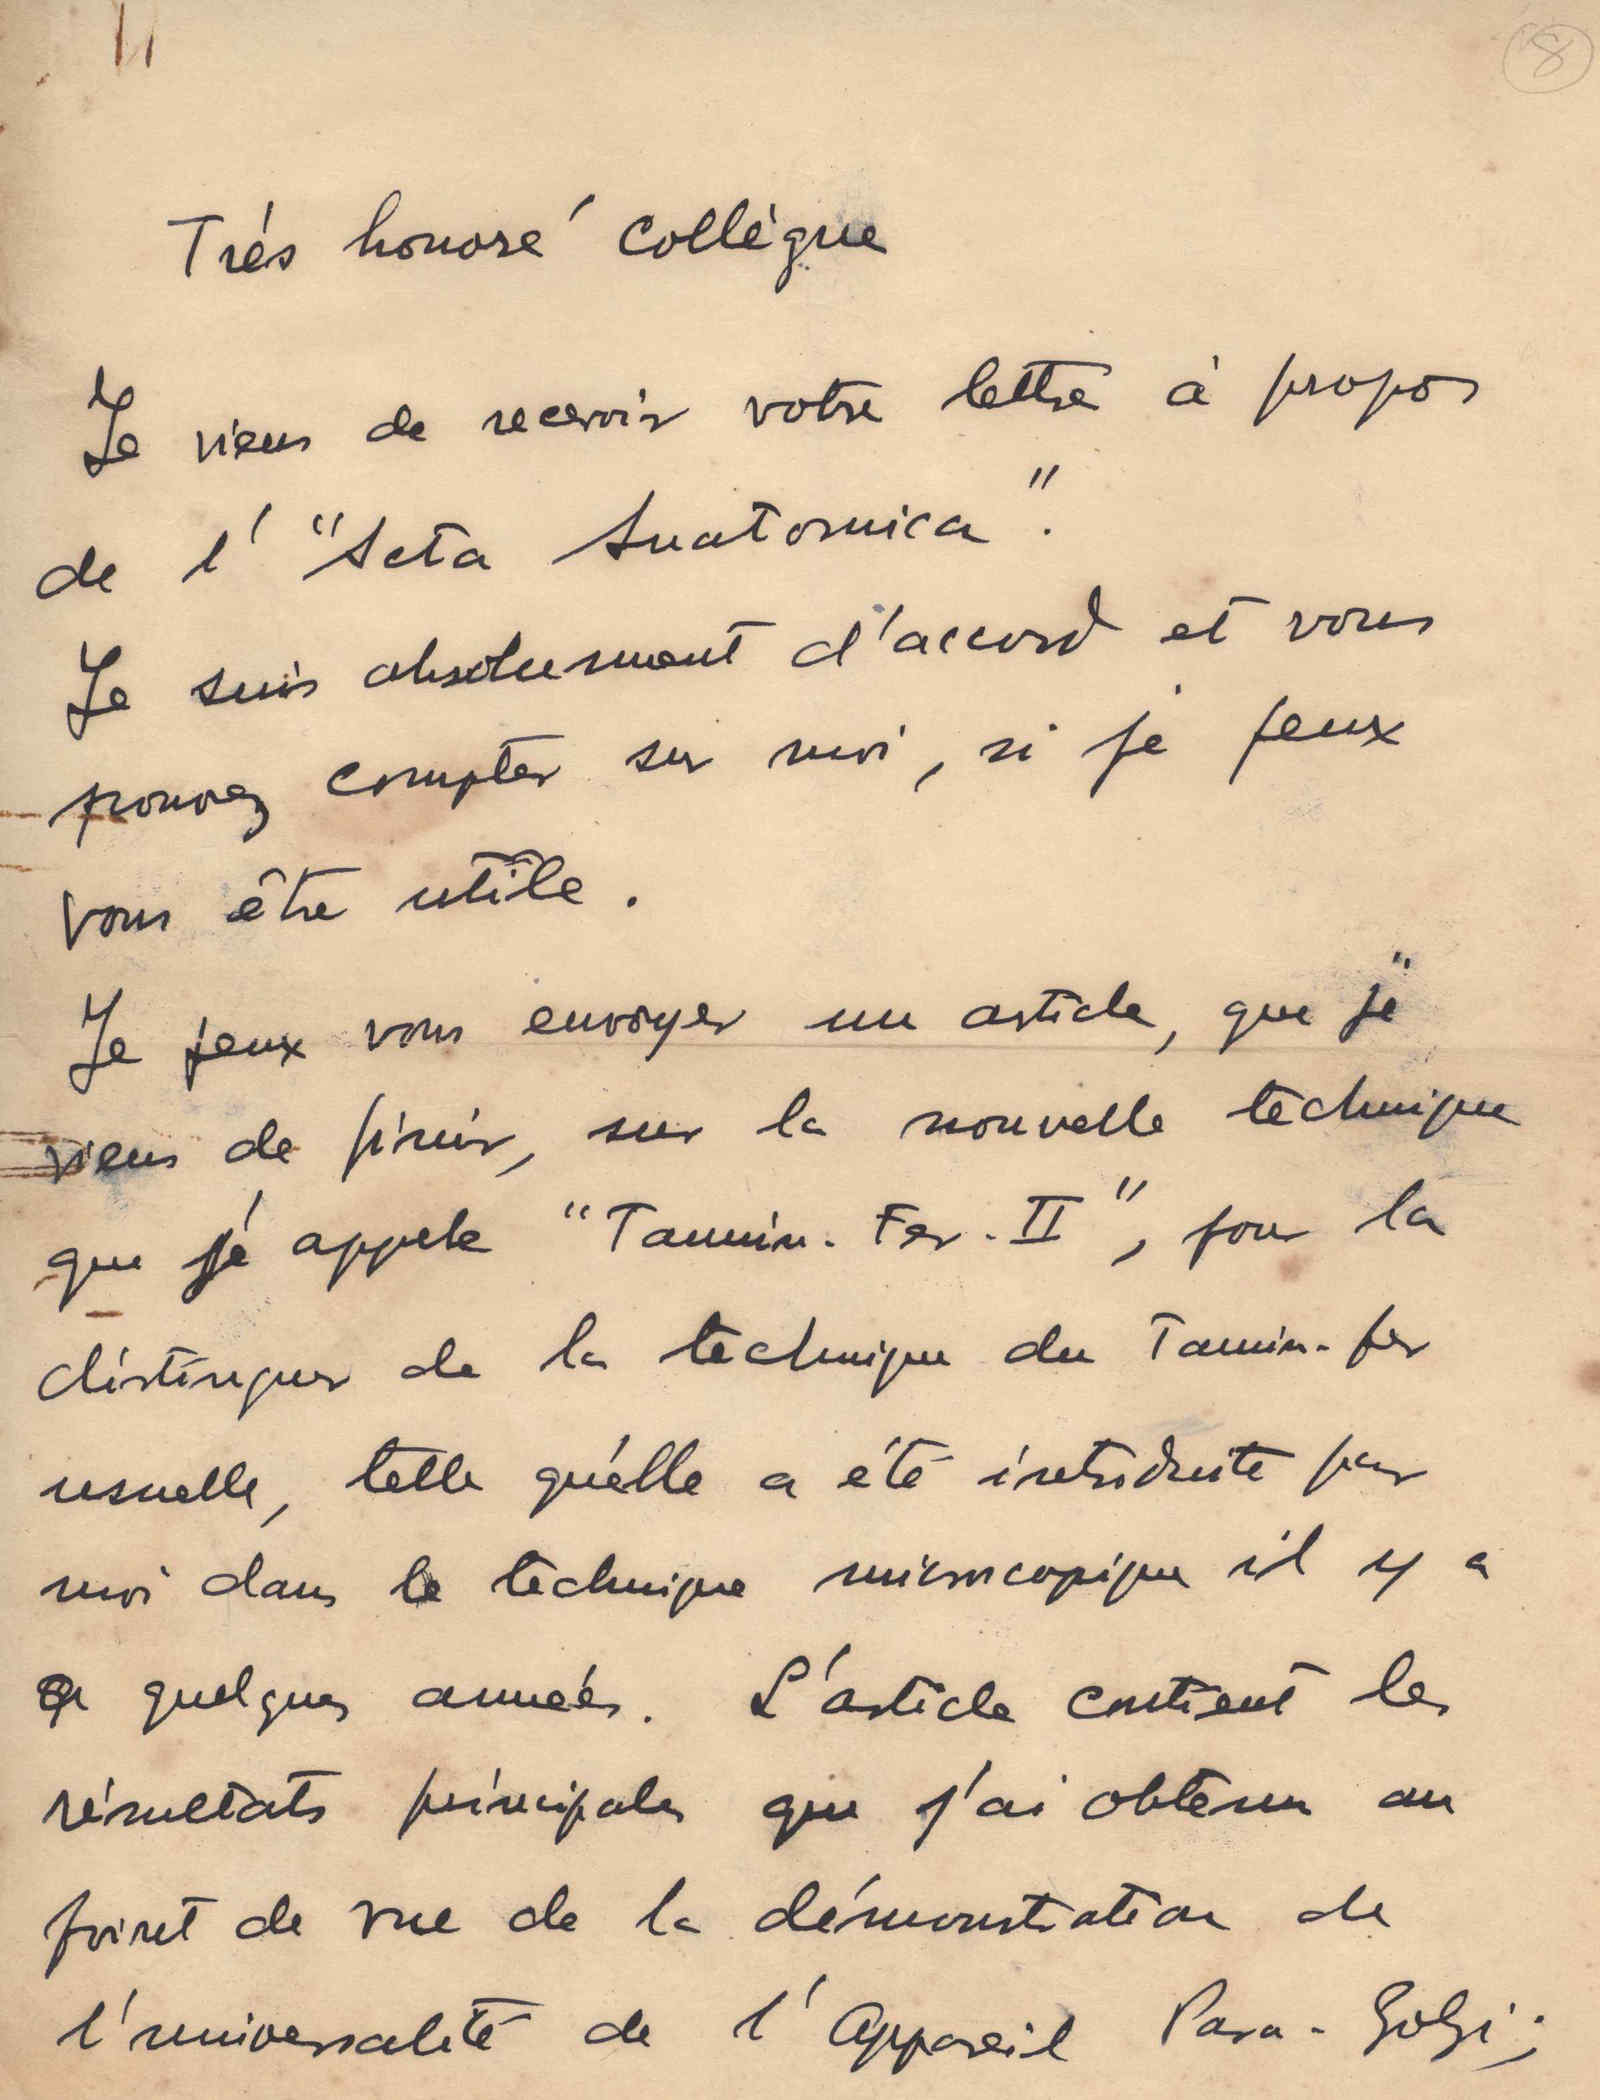 8
Trés honoré collègue
Je viens de recevoir votre lettre à propos
de l' "Acta Anatomica".
Je suis absolument d'accord et vous
pouvez compter sur moi, si je peux
vous être utile.
Je peux vous envoyer un article, que je
viens de finir, sur la nouvelle technique
que jé appele "Tannin. Fer. II", pour la
distinguer de la technique du Tannin. fer
usuelle, telle qu'elle a été introduite par
moi dans le technique microscopique il y a
quelques années. L'article contient les
résultats principales que j'ai obtenu au
point de vue de la démonstration de
l'universalité de l'Appareil Para-Golgi;